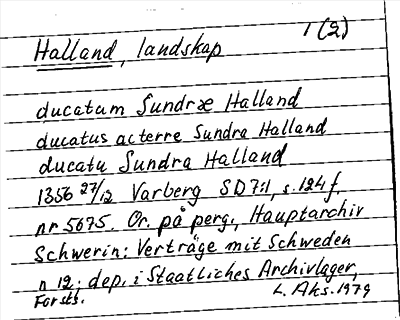 1(2)
Halland, landskap
ducatum Sundræ Halland
ducatus ac terre Sundra Halland
ducatu Sundra Halland
1356 27/12 Varberg SD 7:1, s. 124 f,
nr 5675. Or. på perg., Hauptarchiv
Schwerin: Verträge mit Schweden
n 12; dep. i Staatliches Archivlager,
Forsts. L. Aks. 1979